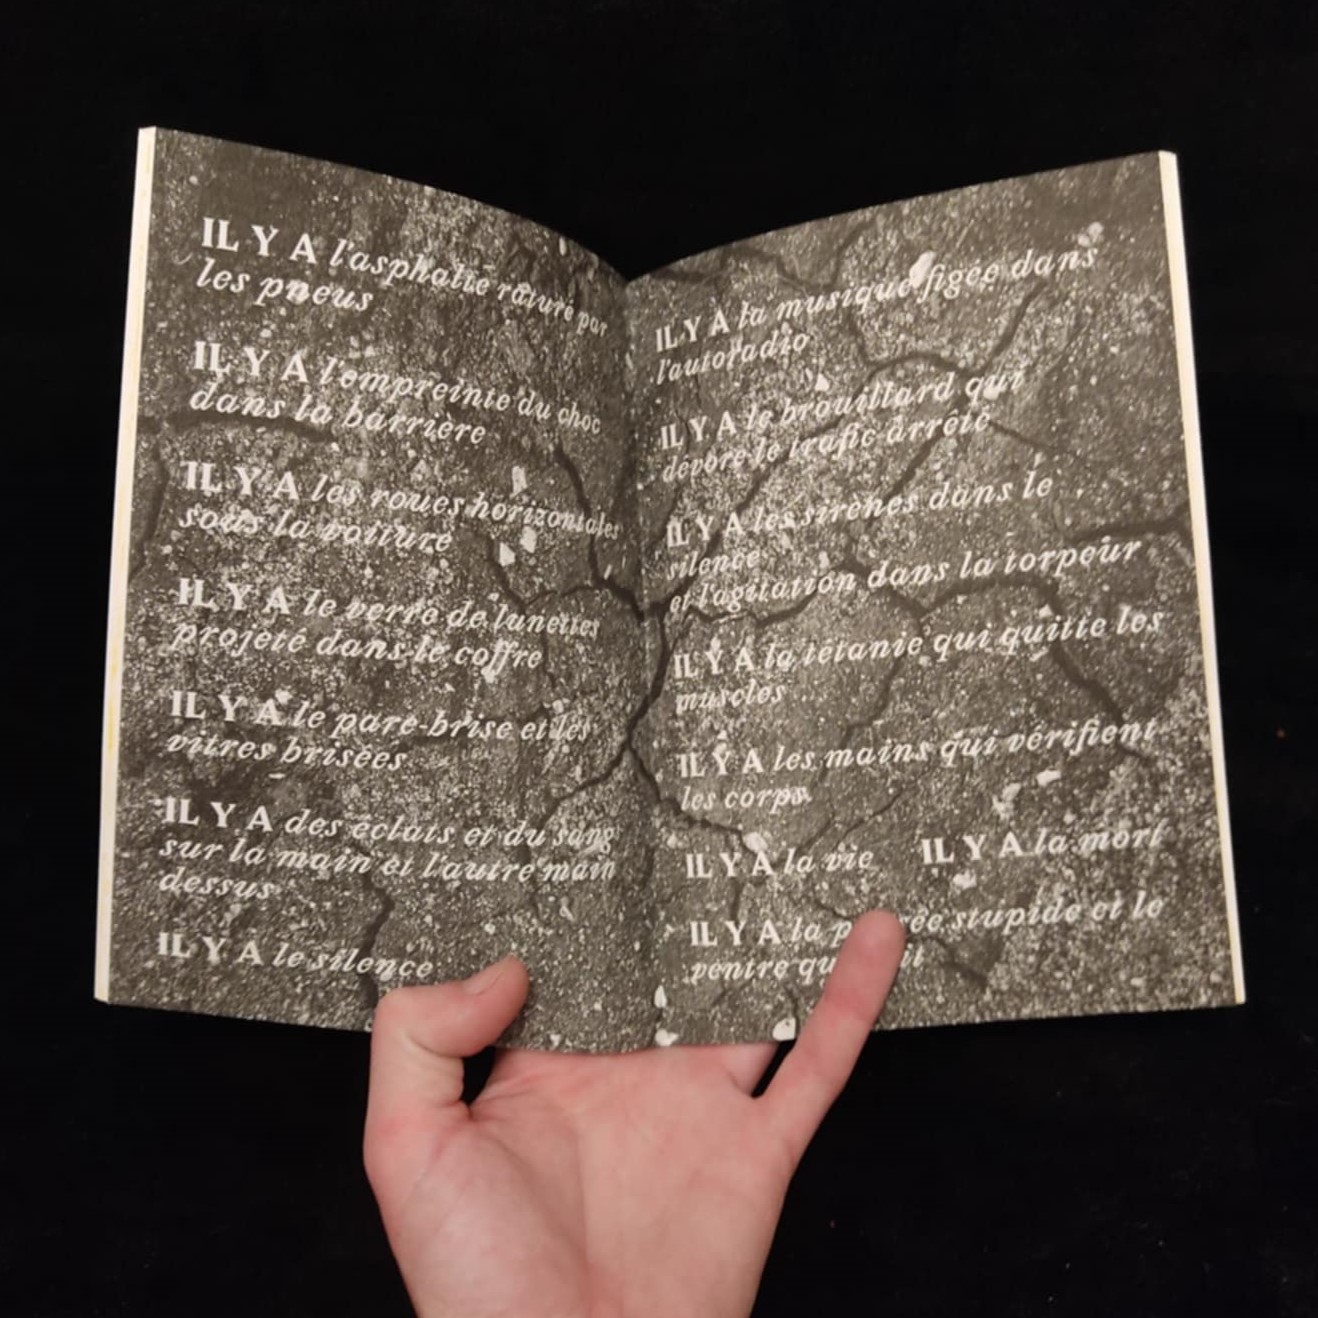 IL Y A l'asphalte raturé par
les pneus
IL Y A l'empreinte du choc
dans la barrière
IL Y A les roues horizontales
sous la voiture
IL Y A le verre de lunettes
projeté dans le coffre
IL Y A le pare-brise et les
vitres brisées
IL Y A des éclats et du sang
sur la main et l'autre main
dessus
IL Y A le silence
IL Y A la musique figée dans
l'autoradio
IL Y A le brouillard qui
dévore le trafic arrêté
IL Y A les sirènes dans le
silence
et l'agitation dans la torpeur
IL Y A la tétanie qui quitte les
muscles
IL Y A les mains qui vérifient
les corps
IL Y A la vie IL Y A la mort
IL Y A la stupide et le
ventre